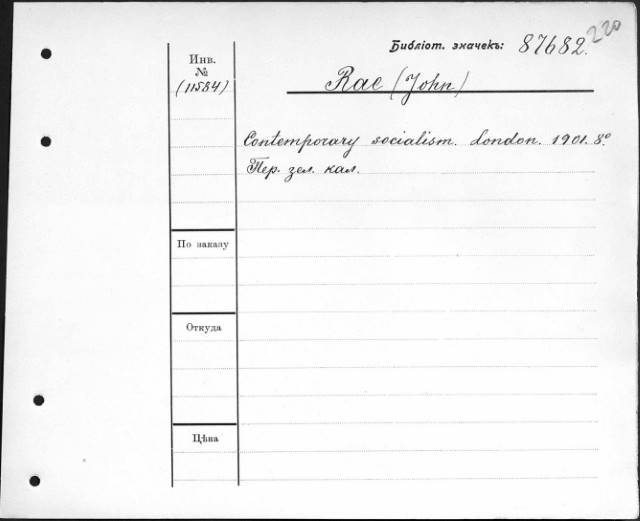 220
Библіот. значекъ: 87682.
Инв.
№
(11584)
Rae (John)
Contemporary socialism. London. 1901. 8°.
Пер. зел. кал.
По заказу
Откуда
Цѣна